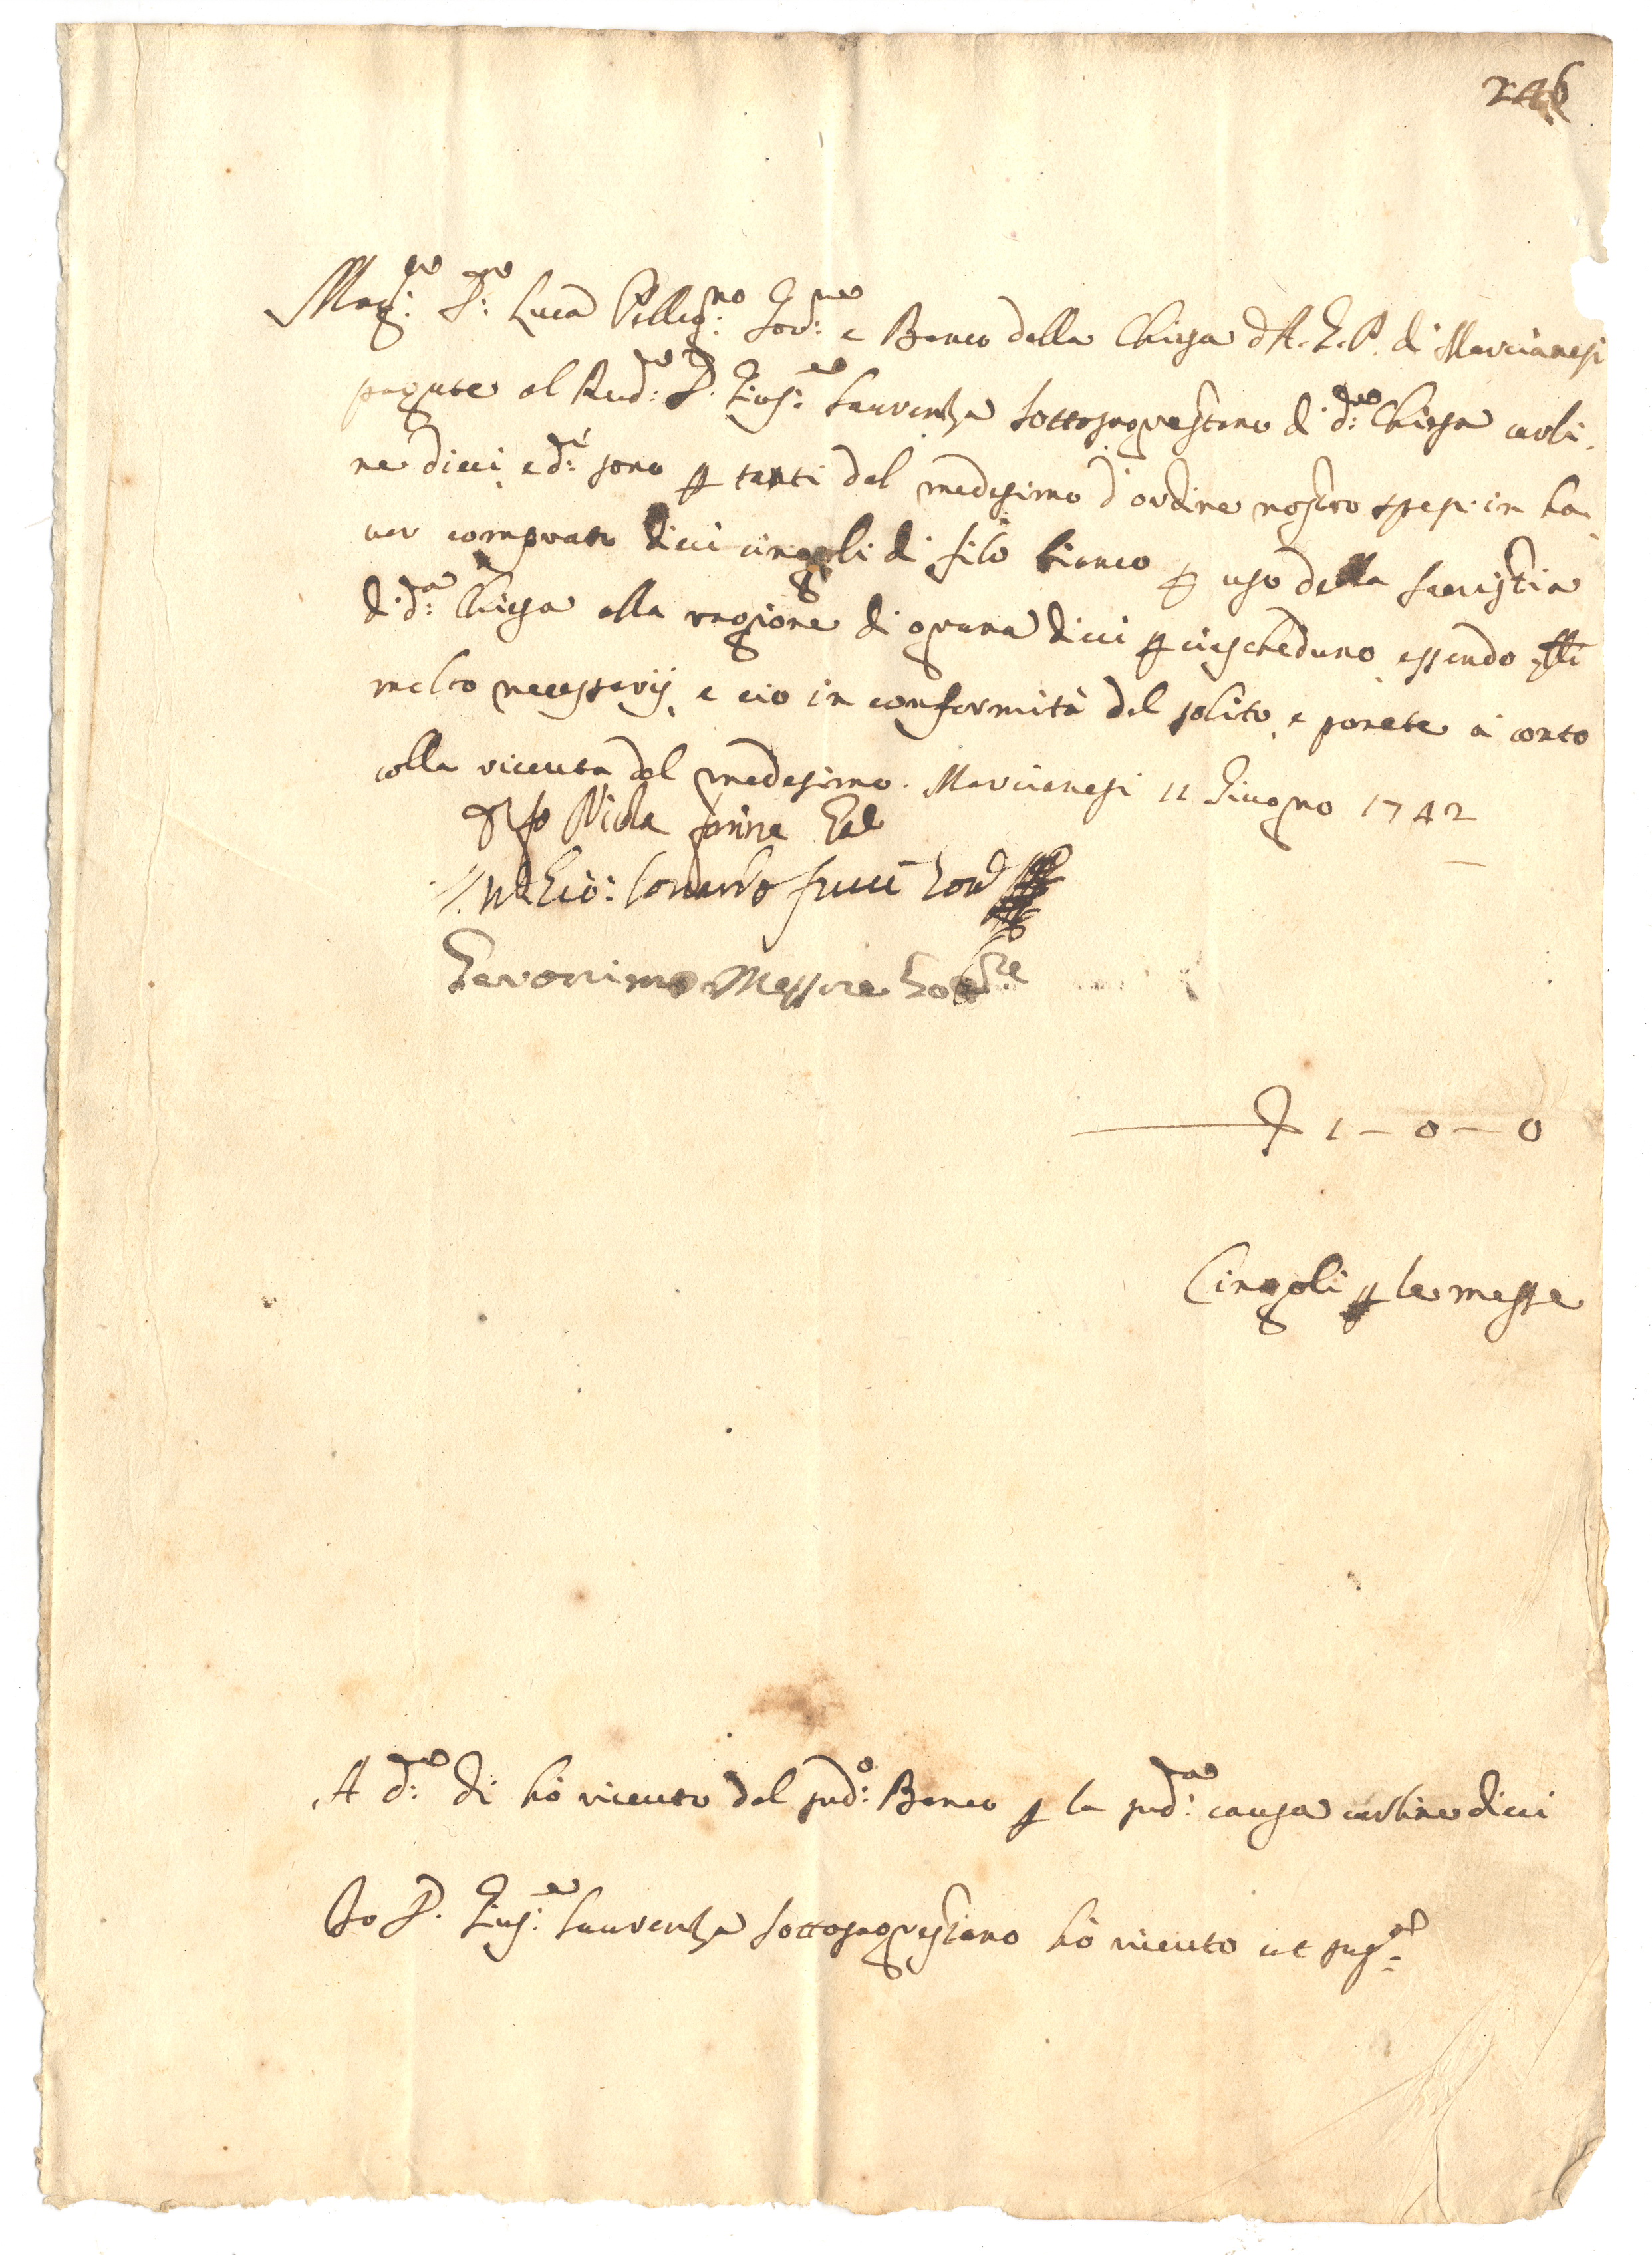 246
Mag:co D:re Luca Pelleg:no Gov:re e Banco della Chiesa d'A. G. P. di Marcianesi
pagate al Rud:o D. Gius:e Laurenza sottosagrestano di d:a Chiesa carli-
ne dieci, e d:i sono p tanti dal medesimo d'ordine nostro spesi in ha-
ver comprato dieci cingoli di filo bianco p uso della sacristia
di d:a Chiesa alla ragione di grana dieci p ciascheduno essendo essi
molto necessarij, e cio in conformità del solito, e ponete a conto
colla riceuta del medesimo. Marcianesi 11 Giugno 1742
Nicola
Gio: Gov
Geronimo Messore Gov:re
1 – 0 – 0
Cingoli p le messe
A d:o di hò riceuto dal sud:o Banco p la sud:a causa carline dieci
Io D. Gius:e Laurenza sottosagrestano hò riceuto ut sup:a